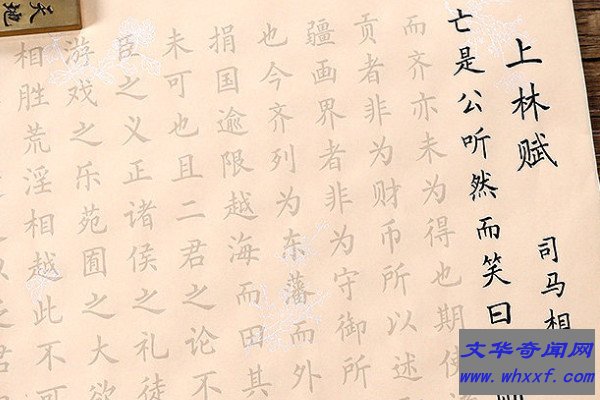 上林赋
司马相
亡是公听然而笑曰
而齐亦未为得也期使
贡者非为财币所以述
疆画界者非为守御所
也今齐列为东藩而外
捐国逾限越海而田其
未可也且二君之论不
臣之义正诸侯之礼徒
游戏之乐苑囿之大欲
相胜荒淫相越此不可
天地
文华奇闻网
www.whxxf.com